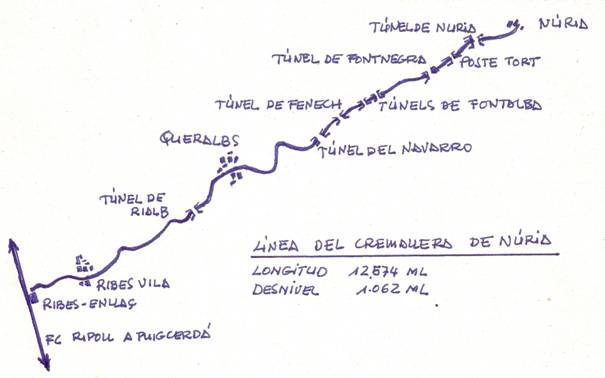 TÚNEL DE NURIA
NÚRIA
TÚNEL DE FONTNEGRA
POSTE TORT
TÚNEL DE FENECH
TÚNELS DE FONTALBA
QUERALBS
TÚNEL DEL NAVARRO
TÚNEL DE
RIALB
LÍNEA DEL CREMALLERA DE NÚRIA
LONGITUD 12,574 ML
DESNIVEL 1.062 ML
RIBES VILA
RIBES-ENLLAÇ
FC RIPOLL A PUIGCERDÁ